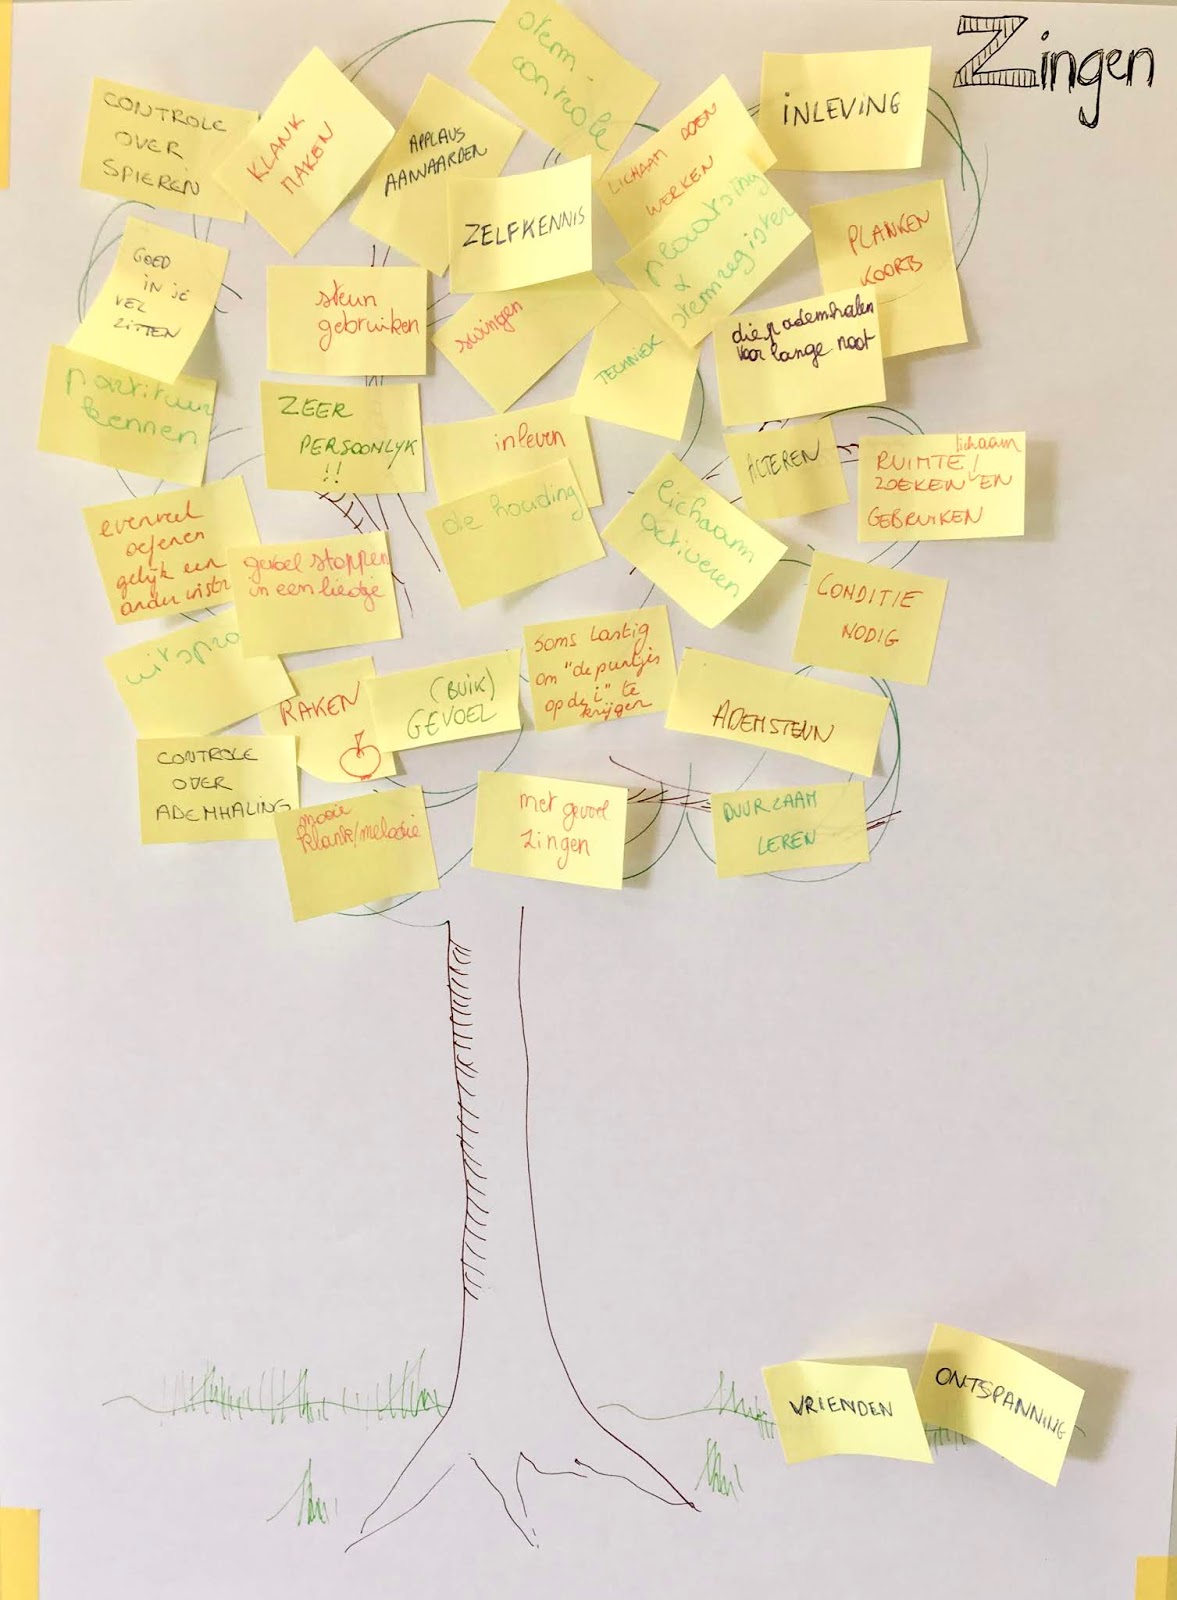 Zingen
stem-
controle
CONTROLE
OVER
SPIEREN
KLANK
MAKEN
APPLAUS
AANVAARDEN
LICHAAM DOEN
WERKEN
INLEVING
ZELFKENNIS
plaatsing
&
stemregister
PLANKEN
KOORTS
GOED
IN JE
VEL
ZITTEN
steun
gebruiken
swingen
TECHNIEK
diep ademhalen
voor lange noot
partituur
kennen
ZEER
PERSOONLYK
!!
inleven
de houding
lichaam
activeren
ACTEREN
lichaam
RUIMTE/
ZOEKEN EN
GEBRUIKEN
evenveel
oefenen
gelijk een
ander instr
gevoel stoppen
in een liedje
CONDITIE
NODIG
uitspra
RAKEN
(BUIK)
GEVOEL
Soms lastig
om "de puntjes
op de i" te
krijgen
ADEMSTEUN
CONTROLE
OVER
ADEMHALING
mooie
klank/melodie
met gevoel
zingen
DUURZAAM
LEREN
VRIENDEN
ONTSPANNING